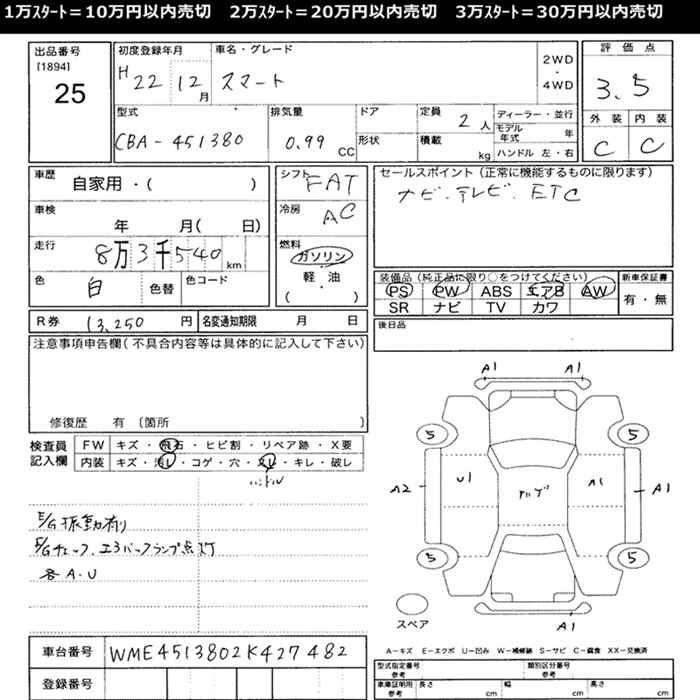 1万スタート=10万円以内売切　2万スタート=20万円以内売切　3万スタート=30万円以内売切
出品番号
[1894]
25
初度登録年月
H 22 12 月
車名・グレード
スマート
2WD
・
4WD
評価点
3.5
外装 内装
C C
型式
CBA-451380
排気量
0.99 CC
ドア
形状
定員
2 人
積載
kg
ディーラー・並行
モデル年式 年
ハンドル 左・右
車歴
自家用・( )
車検
年 月( 日)
走行
8万3千540km
色
白
色替
色コード
シフト
FAT
冷房
AC
燃料
ガソリン
・
軽・油
( )
セールスポイント(正常に機能するものに限ります)
ナビ.テレビ.ETC
装備品(純正品に限り○をつけてください)
PS PW ABS エアB AW
SR ナビ TV カワ
新車保証書
有・無
R券 13,250 円
名変通知期限 月 日
後日品
注意事項申告欄(不具合内容等は具体的に記入して下さい)
修復歴 有〔箇所 〕
検査員
記入欄
FW キズ・飛石・ヒビ割・リペア跡・X要
内装 キズ・汚レ・コゲ・穴・スレ・キレ・破レ
ハンドル
E/G振動有り
E/Gチェック、エアバッグランプ点灯
各A.U
A1 A1
5 5
A2 U1 A1 A1
5 5
スペア
A1
A-キズ E-エクボ U-凹み W-補修跡 S-サビ C-腐食 XX-交換済
車台番号 WME4513802K427482
登録番号
型式指定番号
参考
類別区分番号
参考
車庫証明用
参考
長さ cm
幅 cm
高さ cm